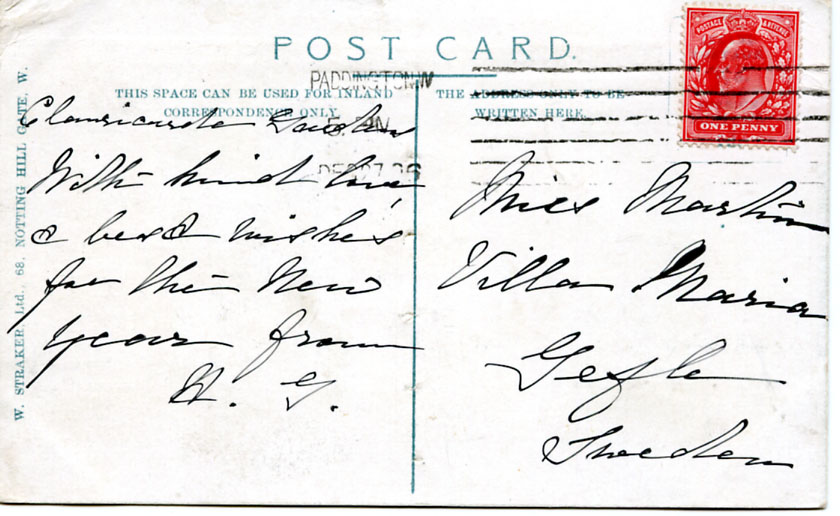 POST CARD.
THIS SPACE CAN BE USED FOR INLAND
CORRESPONDENCE ONLY.
THE ADDRESS ONLY TO BE
WRITTEN HERE.
PADDINGTON.W
DEC 27 06
POSTAGE & REVENUE
ONE PENNY
W. STRAKER, Ltd., 68, NOTTING HILL GATE, W.
Clanricarde Gardens
With kind love
& best wishes
for the New
Year from
H. G.
Miss Martin
Villa Maria
Gefle
Sweden